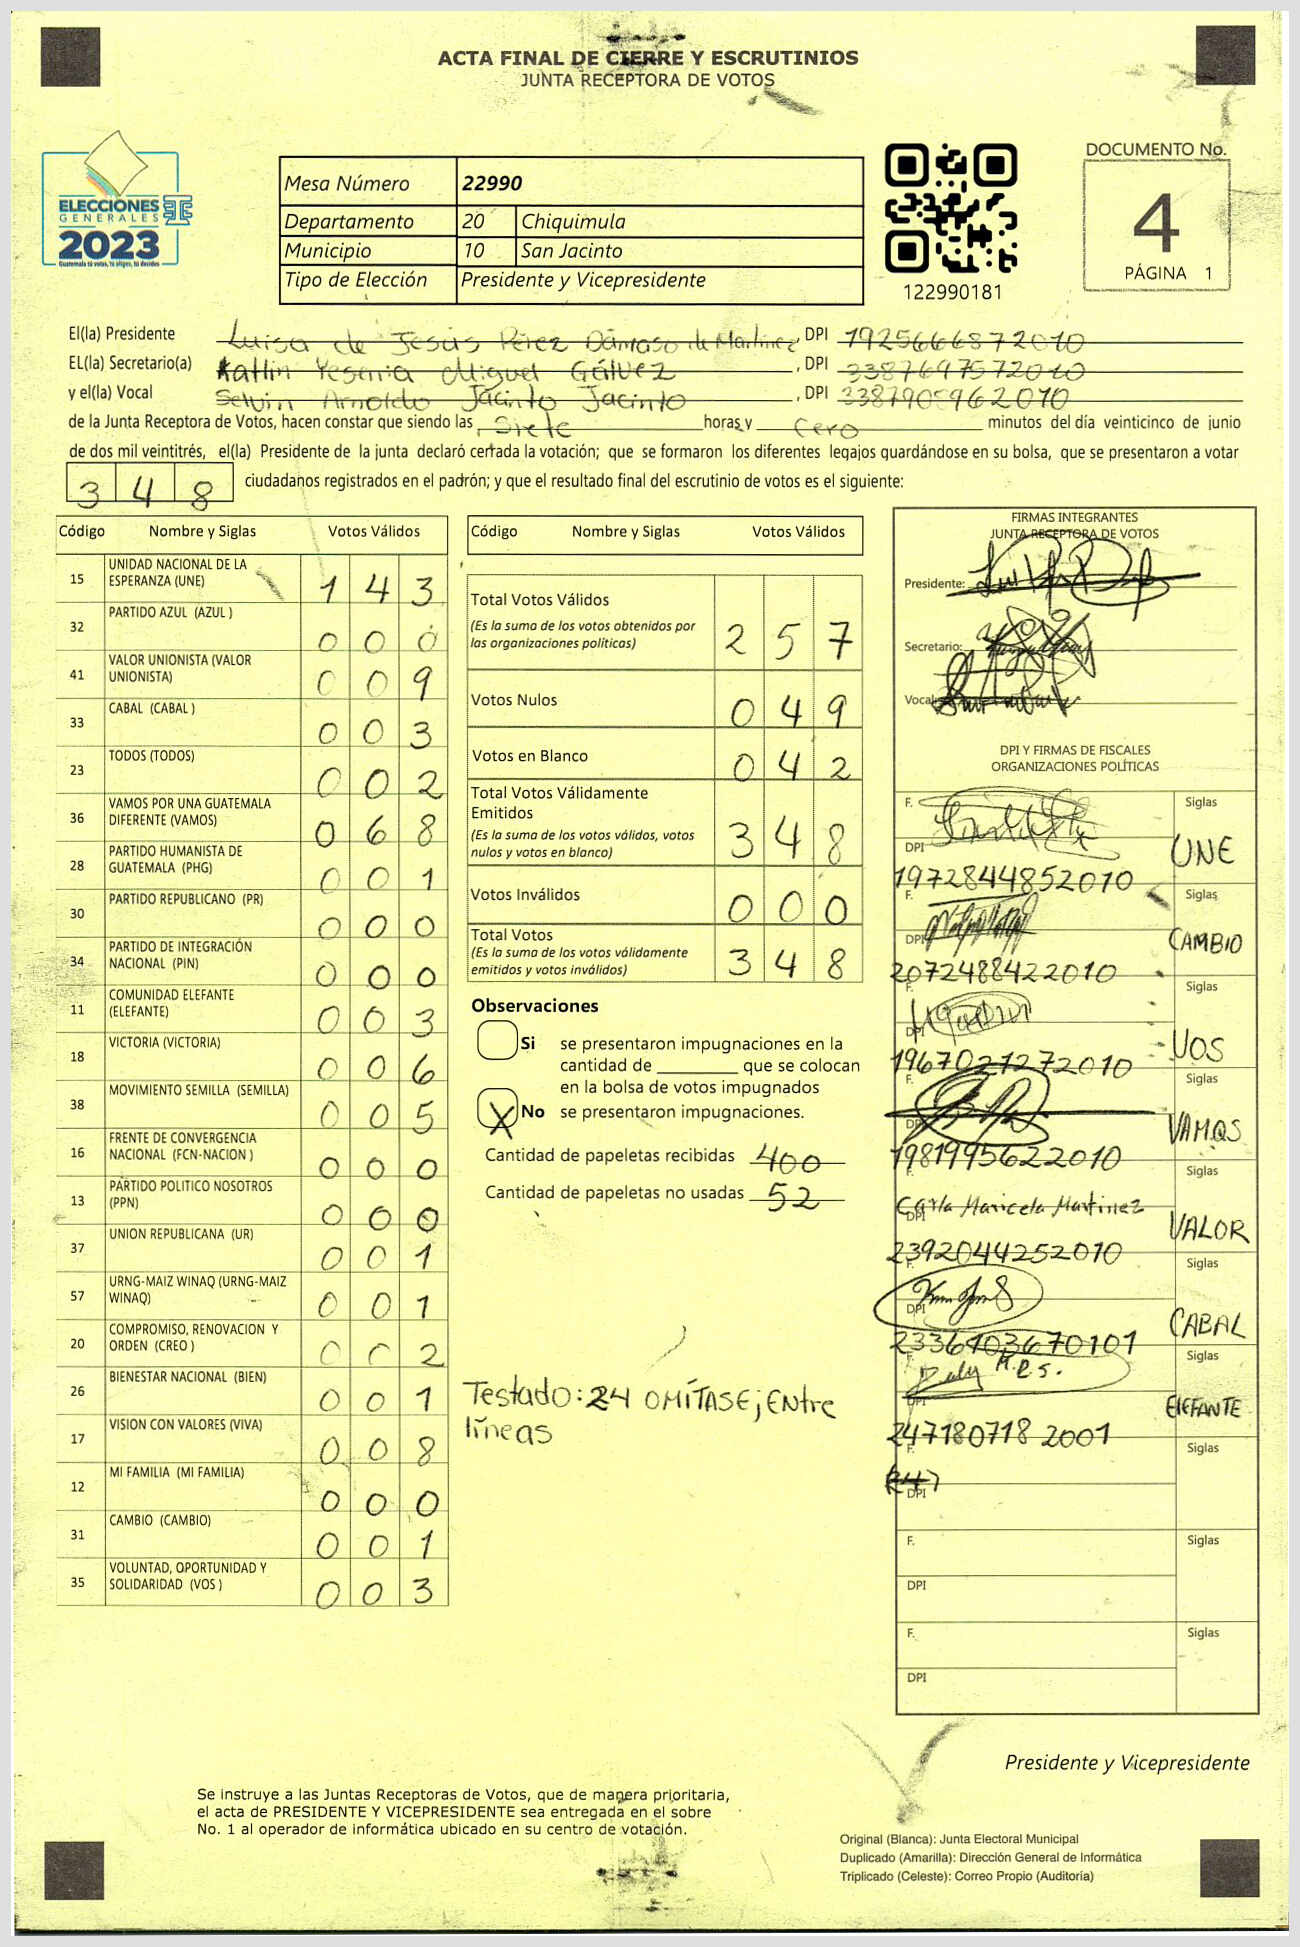 ACTA FINAL DE CIERRE Y ESCRUTINIOS
JUNTA RECEPTORA DE VOTOS
ELECCIONES
GENERALES
2023
Guatemala tú votas, tú eliges, tú decides
Mesa Número 22990
Departamento 20 Chiquimula
Municipio 10 San Jacinto
Tipo de Elección Presidente y Vicepresidente
122990181
DOCUMENTO No.
4
PÁGINA 1
El(la) Presidente Luisa de Jesús Pérez Dámaso de Martínez, DPI 1925666872010
EL(la) Secretario(a) Katlin Yesenia Miguel Gálvez, DPI 3387697572010
y el(la) Vocal Selvin Arnoldo Jacinto Jacinto, DPI 3387905962010
de la Junta Receptora de Votos, hacen constar que siendo las siete horas y cero minutos del día veinticinco de junio
de dos mil veintitrés, el(la) Presidente de la junta declaró cerrada la votación; que se formaron los diferentes legajos guardándose en su bolsa, que se presentaron a votar
3 4 8 ciudadanos registrados en el padrón; y que el resultado final del escrutinio de votos es el siguiente:
Código Nombre y Siglas Votos Válidos
15 UNIDAD NACIONAL DE LA
ESPERANZA (UNE) 1 4 3
32 PARTIDO AZUL (AZUL ) 0 0 0
41 VALOR UNIONISTA (VALOR
UNIONISTA) 0 0 9
33 CABAL (CABAL ) 0 0 3
23 TODOS (TODOS) 0 0 2
36 VAMOS POR UNA GUATEMALA
DIFERENTE (VAMOS) 0 6 8
28 PARTIDO HUMANISTA DE
GUATEMALA (PHG) 0 0 1
30 PARTIDO REPUBLICANO (PR) 0 0 0
34 PARTIDO DE INTEGRACIÓN
NACIONAL (PIN) 0 0 0
11 COMUNIDAD ELEFANTE
(ELEFANTE) 0 0 3
18 VICTORIA (VICTORIA) 0 0 6
38 MOVIMIENTO SEMILLA (SEMILLA) 0 0 5
16 FRENTE DE CONVERGENCIA
NACIONAL (FCN-NACION ) 0 0 0
13 PARTIDO POLITICO NOSOTROS
(PPN) 0 0 0
37 UNION REPUBLICANA (UR) 0 0 1
57 URNG-MAIZ WINAQ (URNG-MAIZ
WINAQ) 0 0 1
20 COMPROMISO, RENOVACION Y
ORDEN (CREO ) 0 0 2
26 BIENESTAR NACIONAL (BIEN) 0 0 1
17 VISION CON VALORES (VIVA) 0 0 8
12 MI FAMILIA (MI FAMILIA) 0 0 0
31 CAMBIO (CAMBIO) 0 0 1
35 VOLUNTAD, OPORTUNIDAD Y
SOLIDARIDAD (VOS ) 0 0 3
Código Nombre y Siglas Votos Válidos
Total Votos Válidos
(Es la suma de los votos obtenidos por
las organizaciones políticas) 2 5 7
Votos Nulos 0 4 9
Votos en Blanco 0 4 2
Total Votos Válidamente
Emitidos
(Es la suma de los votos válidos, votos
nulos y votos en blanco) 3 4 8
Votos Inválidos 0 0 0
Total Votos
(Es la suma de los votos válidamente
emitidos y votos inválidos) 3 4 8
Observaciones
Si se presentaron impugnaciones en la
cantidad de ________ que se colocan
en la bolsa de votos impugnados
X No se presentaron impugnaciones.
Cantidad de papeletas recibidas 400
Cantidad de papeletas no usadas 52
Testado: 24 OMÍTASE; Entre
líneas
FIRMAS INTEGRANTES
JUNTA RECEPTORA DE VOTOS
Presidente:
Secretario:
Vocal
DPI Y FIRMAS DE FISCALES
ORGANIZACIONES POLÍTICAS
F. Siglas
DPI UNE
1972844852010
F. Siglas
DPI CAMBIO
2072488422010
F. Siglas
DPI VOS
1967021272010
F. Siglas
DPI VAMOS
1981995622010
F. Siglas
Carla Maricela Martinez
DPI VALOR
2392044252010
F. Siglas
DPI CABAL
2336103670101
F. Siglas
DPI ElEFANTE
247180718 2001
F. Siglas
DPI
F. Siglas
DPI
F. Siglas
DPI
Presidente y Vicepresidente
Se instruye a las Juntas Receptoras de Votos, que de manera prioritaria,
el acta de PRESIDENTE Y VICEPRESIDENTE sea entregada en el sobre
No. 1 al operador de informática ubicado en su centro de votación.
Original (Blanca): Junta Electoral Municipal
Duplicado (Amarilla): Dirección General de Informática
Triplicado (Celeste): Correo Propio (Auditoría)